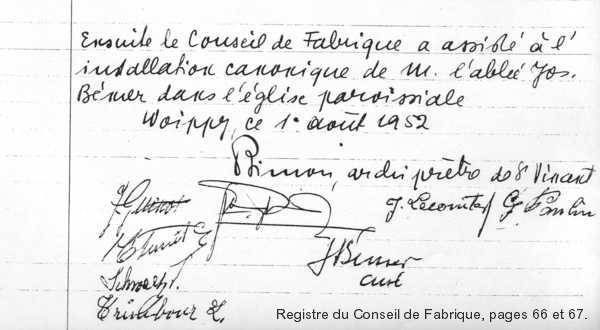 Ensuite le Conseil de Fabrique a assisté à l'
installation canonique de M. l'abbé Jos.
Bémer dans l'église paroissiale
Woippy, ce 1er août 1952
archiprêtre de St Vincent
J. Lecomte
J. Bemer
curé
Registre du Conseil de Fabrique, pages 66 et 67.